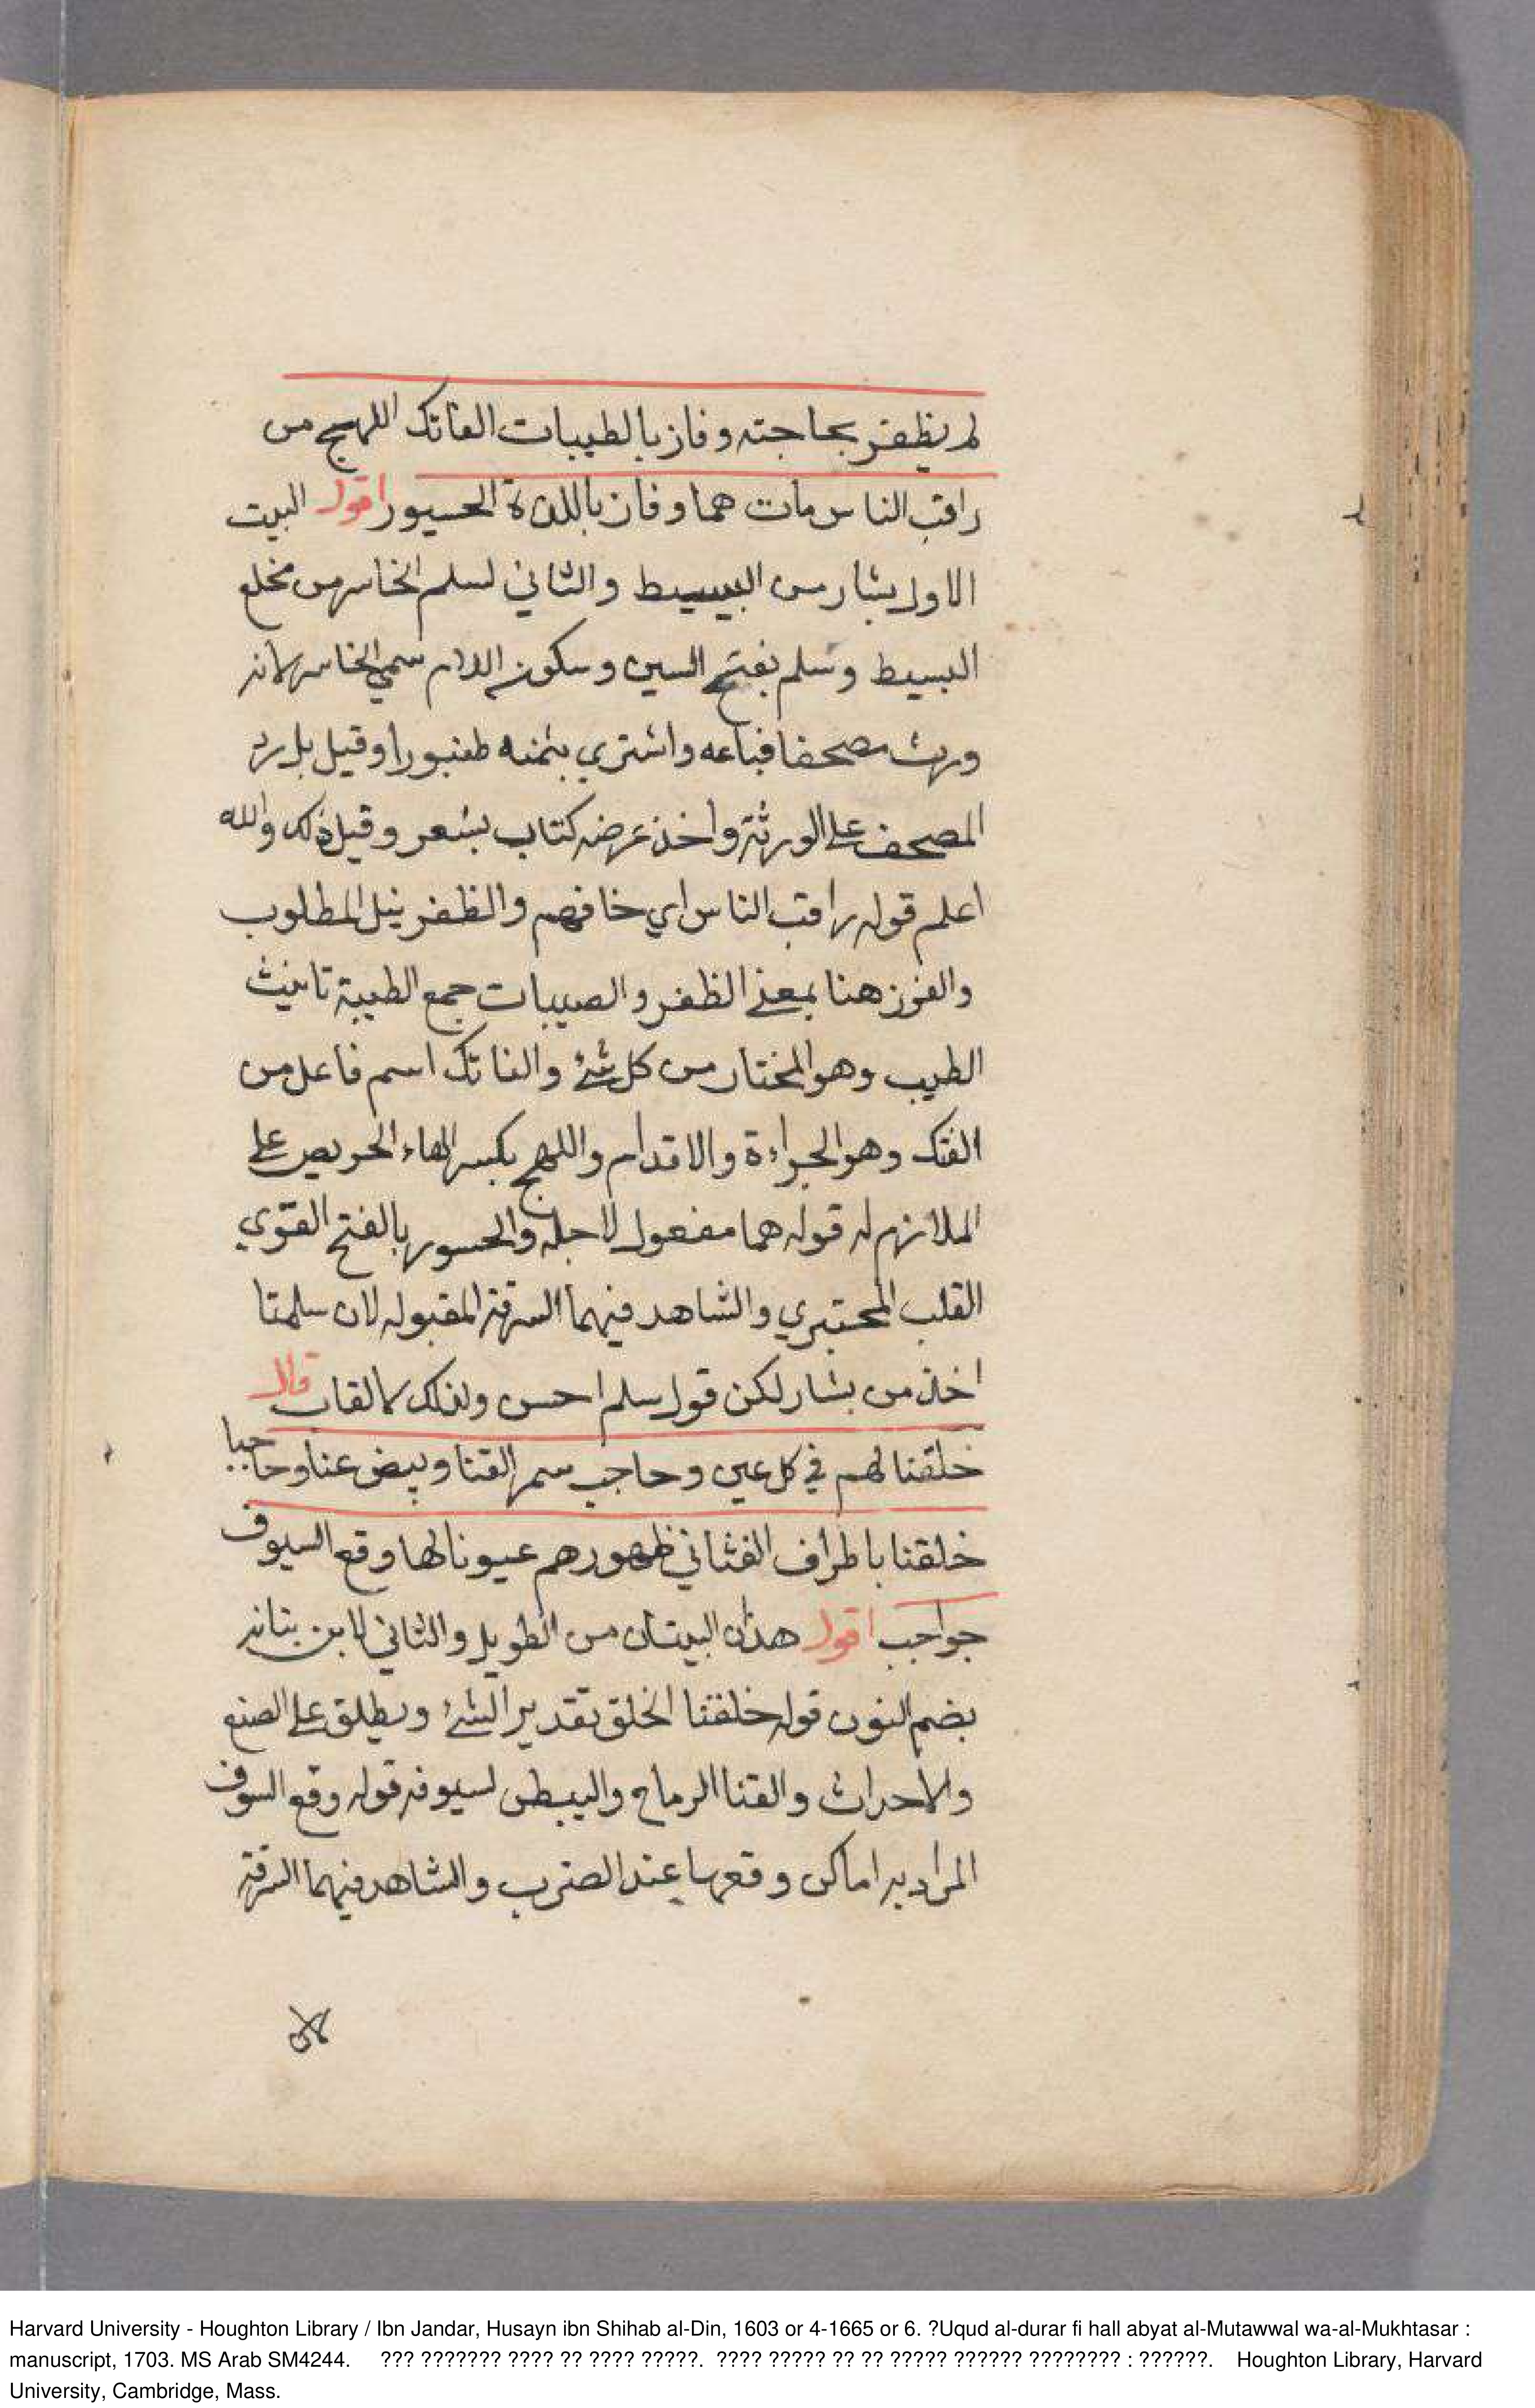 لم يظفر بحاجته وفاز بالطيبات الفاتك اللهج من
راقب الناس مات هما وفاز باللذة الحسيور اقول البيت
الاول بشار من البسيط والثاني لسلم الخاسر من مخلع
البسيط وسلم بفتح السين وسكون اللام سمي الخاسر لانه
ورث مصحفا فباعه واشتري بثمنه طنبورا وقيل بل رد
المصحف علي الورثة واخذ عوضه كتاب بشعر وقيل ذلك والله
اعلم قوله راقب الناس اي خافهم والظفر نيل المطلوب
والفوز هنا بمعني الظفر والصيبات جمع الطيبة تانيث
الطيب وهو المختار من كل شئ والفاتك اسم فاعل من
الفتك وهو الجراءة والاقدام واللهج بكسر الهاء الحريص علي
الملازم له قوله هما مفعول لاجله والحسور بالفتح القوي
القلب المجتري والشاهد فيهما السرقة المقبوله لان سلمتا
اخذ من بشار لكن قول سلم احسن ولذلك قال
خلقنا لهم في كل عين وحاجب سمر القنا وبيض عنا وحاجبا
خلقنا باطراف القنا في ظهورهم عيونا لها وقع السيوف
حواجب اقول هذان البيتان من الطويل والثاني لابن بناته
بضم النون قوله خلقنا الخلق تقدير الشئ ويطلق علي الصنع
والاحداث والقنا الرماح والبيض لسيوف قوله وقع السوف
المراد به اماكن وقعها عند الضرب والشاهد فيهما السرقة
لان
Harvard University - Houghton Library / Ibn Jandar, Husayn ibn Shihab al-Din, 1603 or 4-1665 or 6. ?Uqud al-durar fi hall abyat al-Mutawwal wa-al-Mukhtasar :
manuscript, 1703. MS Arab SM4244. ??? ??????? ???? ?? ???? ?????. ???? ????? ?? ?? ????? ?????? ???????? : ??????. Houghton Library, Harvard
University, Cambridge, Mass.